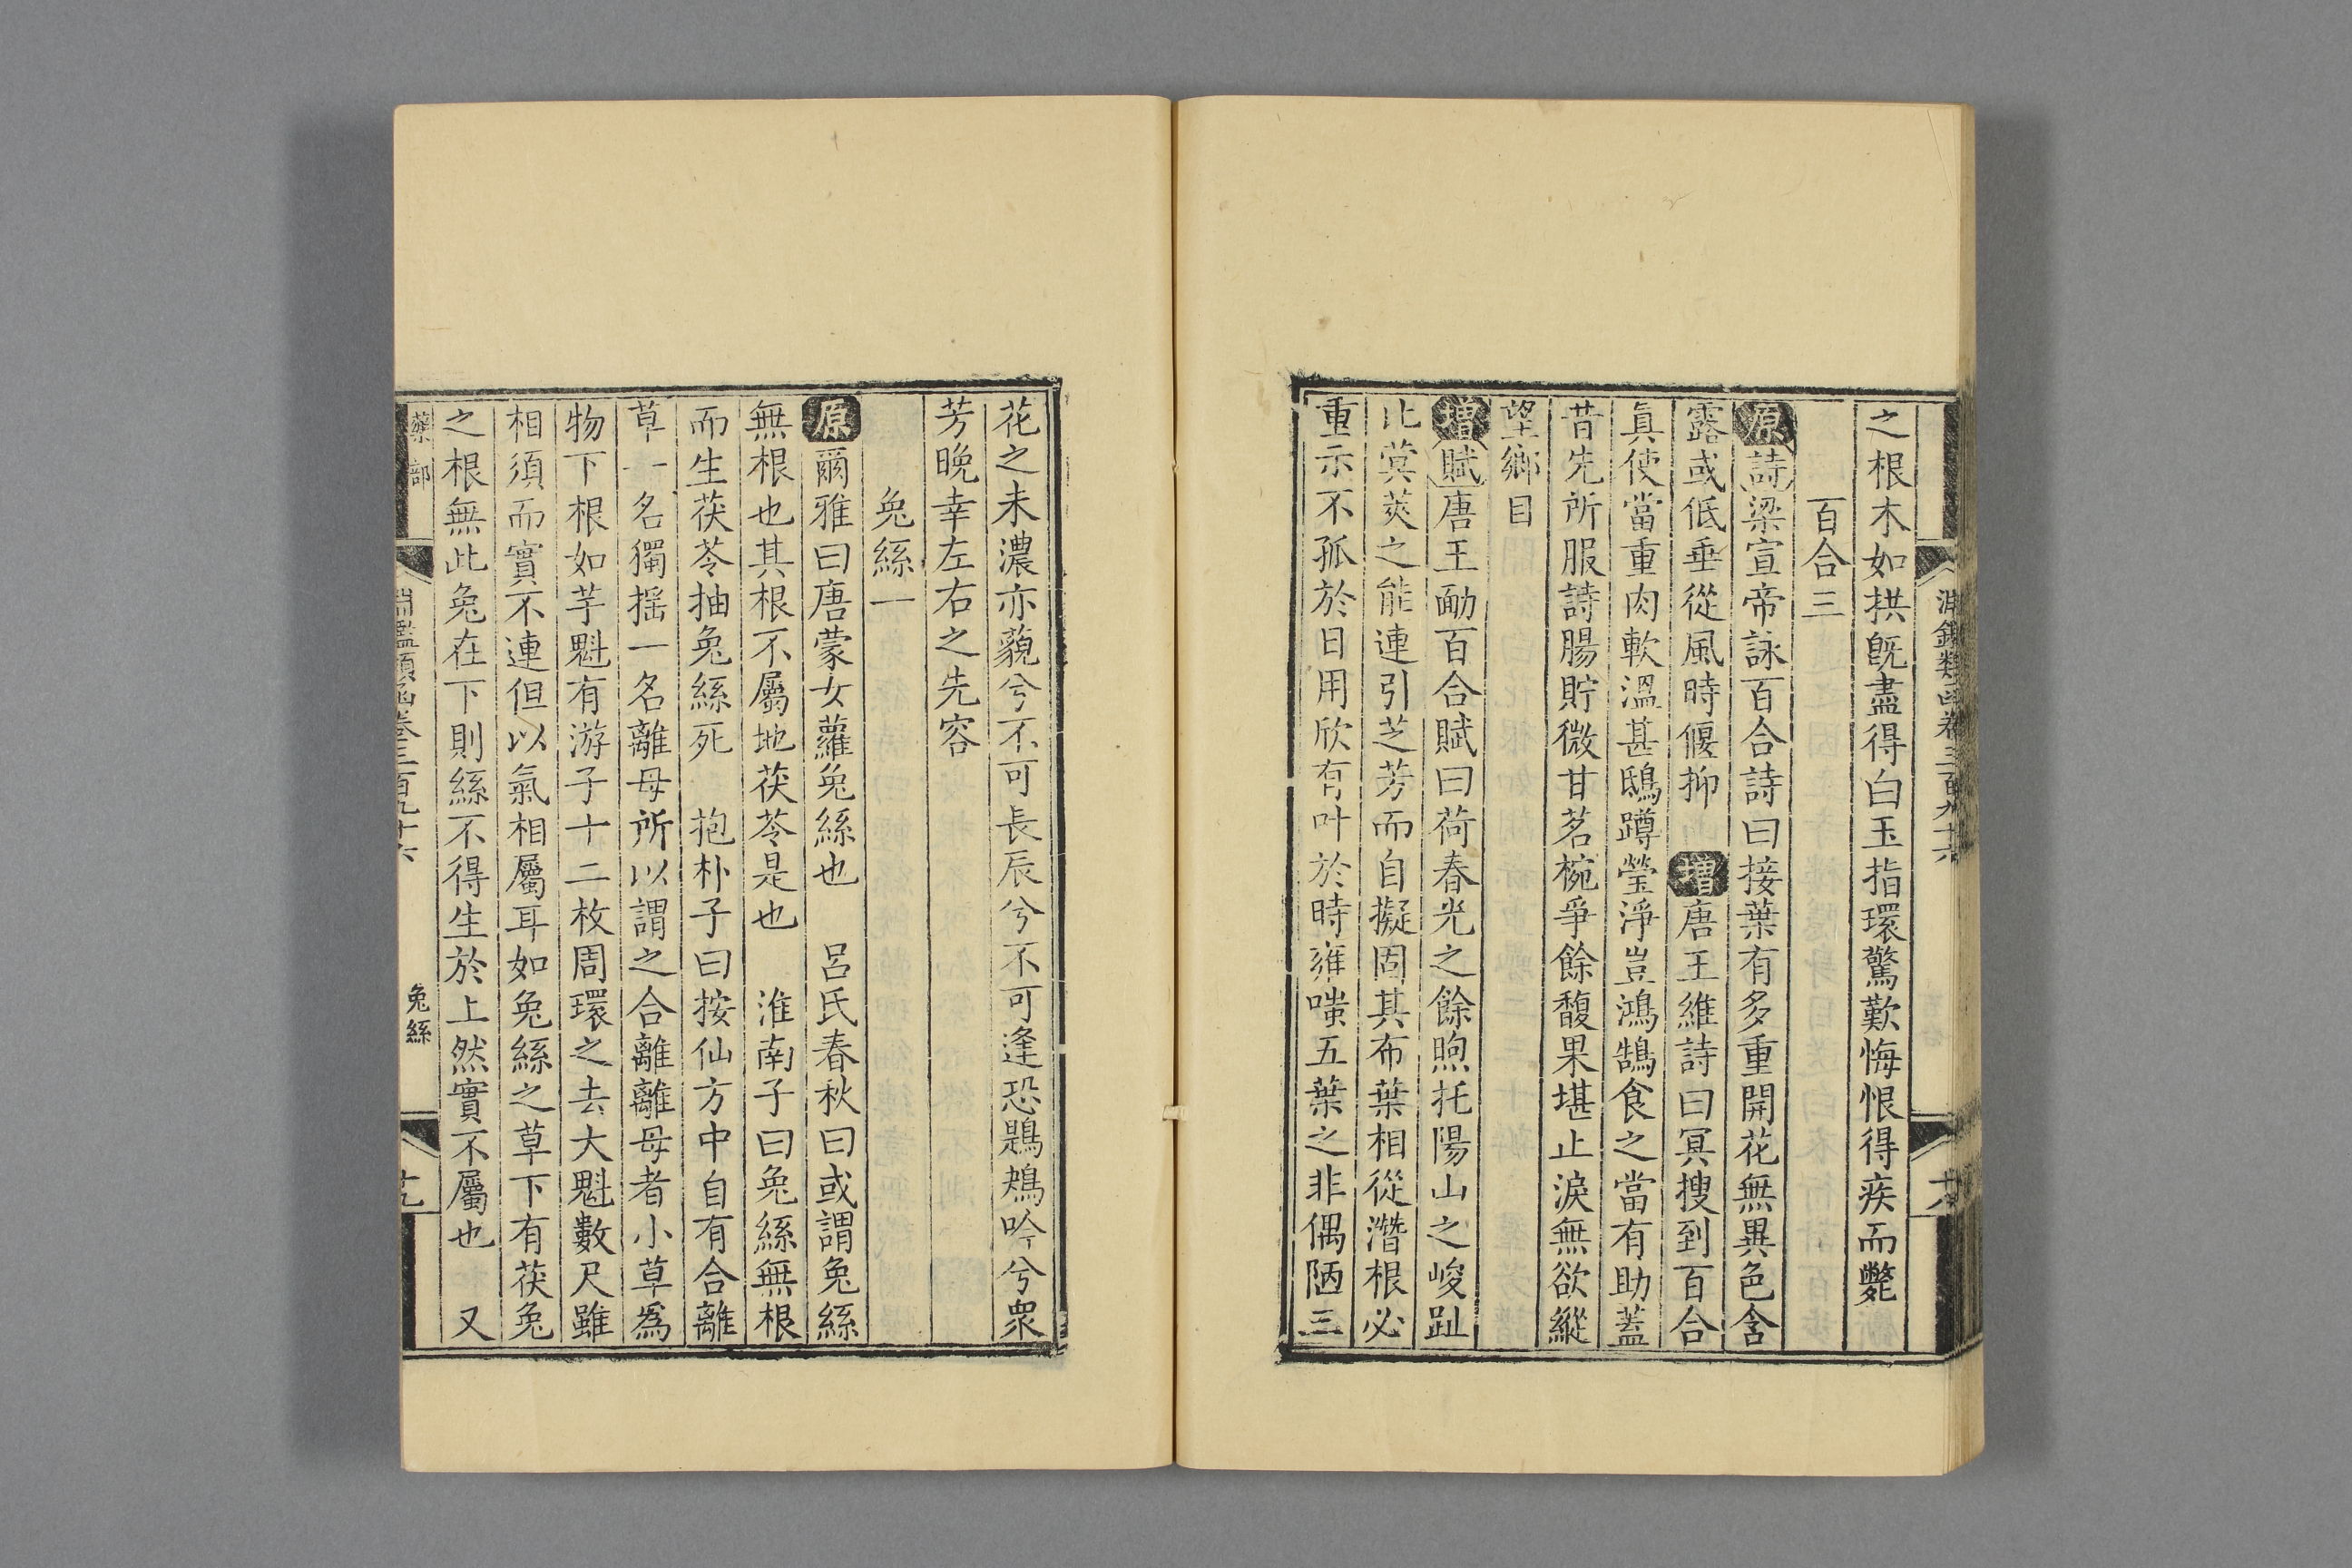 淵鑑類函卷三百九十六
之根木如拱旣盡得白玉指環驚歎悔恨得疾而斃
百合三
原詩梁宣帝詠百合詩曰接葉有多重開花無異色含
露或低垂從風時偃抑 增唐王維詩曰冥搜到百合
眞使當重肉軟溫甚鴟蹲瑩淨豈鴻鵠食之當有助蓋
昔先所服詩腸貯微甘茗椀爭餘馥果堪止淚無欲縱
望鄉目
增賦唐王勔百合賦曰荷春光之餘煦托陽山之峻趾
比蓂莢之能連引芝芳而自擬固其布葉相從潛根必
重示不孤於日用欣有叶於時雍嗤五葉之非偶陋三
花之未濃亦藐兮不可長辰兮不可逢恐鶗鴂吟兮衆
芳晚幸左右之先容
兔絲一
原爾雅曰唐蒙女蘿兔絲也 呂氏春秋曰或謂兔絲
無根也其根不屬地茯苓是也 淮南子曰兔絲無根
而生茯苓抽兔絲死 抱朴子曰按仙方中自有合離
草一名獨搖一名離母所以謂之合離離母者小草爲
物下根如芋魁有游子十二枚周環之去大魁數尺雖
相須而實不連但以氣相屬耳如兔絲之草下有茯兔
之根無此兔在下則絲不得生於上然實不屬也 又
藥部
淵鑑類函卷三百九十六
兔絲
十九